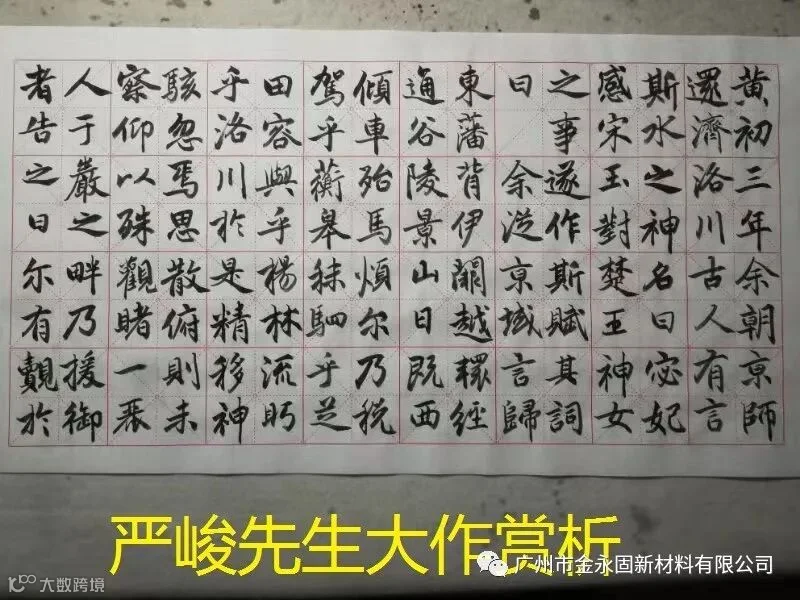 黄初三年余朝京師
還濟洛川古人有言
斯水之神名曰宓妃
感宋玉對楚王神女
之事遂作斯賦其詞
曰 余從京域言歸
東藩背伊闕越轘經
通谷陵景山日既西
傾車殆馬煩尔乃税
駕乎蘅皋秣駟乎芝
田容與乎楊林流眄
乎洛川於是精移神
駭忽焉思散俯則未
察仰以殊觀睹一麗
人于嚴之畔乃援御
者告之曰尔有覿於
严峻先生大作赏析
广州市金永固新材料有限公司
大数跨境